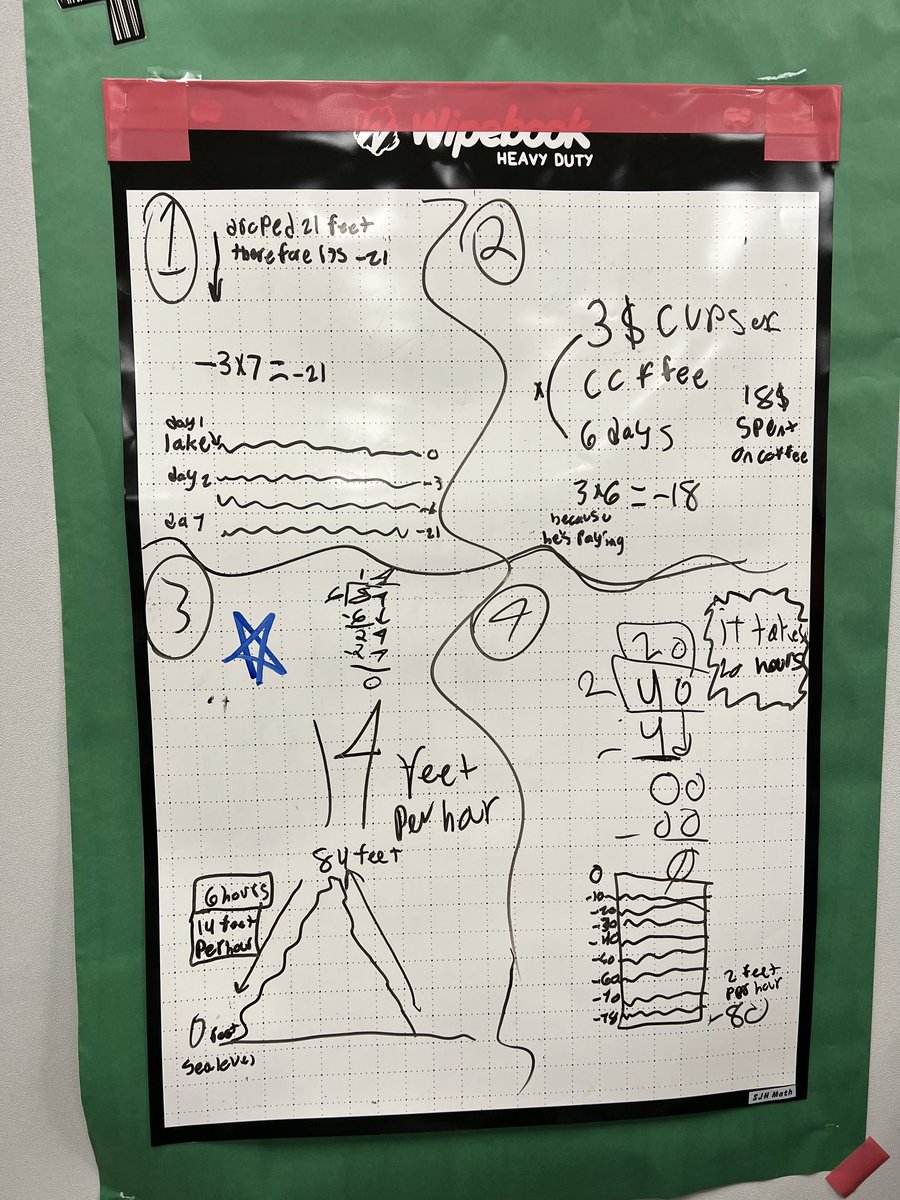 Wipebook
HEAVY DUTY
1
droped 21 feet
therefore its -21
-3x7=-21
day 1
lake
0
day 2
-3
da 7
-21
2
3$ cups
coffee
x
6 days
18$
spent
on coffee
3x6=-18
because
he's paying
3
14
6 84
-6
24
-24
0
14 feet
per hour
84 feet
6 hours
14 feet
Per hour
0 feet
sea level
4
20
2 40
- 40
00
- 00
0
it takes
20 hours
0
-10
-20
-30
-40
-60
-70
-78
2 feet
per hour
-80
SJH Math